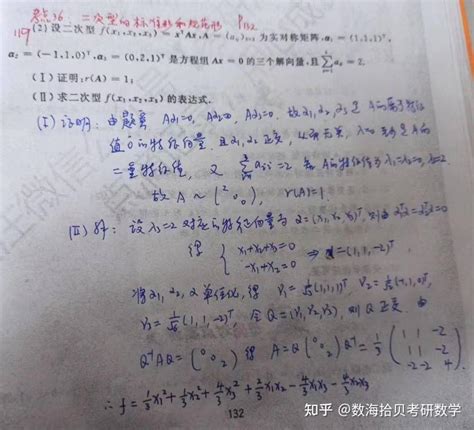 考点36 二次型的标准形和规范形 P132
119
(2) 设二次型 f(x₁,x₂,x₃) = xᵀAx, A = (aᵢⱼ)₃ₓ₃ 为实对称矩阵, α₁ = (1,1,1)ᵀ,
α₂ = (-1,1,0)ᵀ, α₃ = (0,2,1)ᵀ 是方程组 Ax = 0 的三个解向量, 且 = 2.
(Ⅰ) 证明: r(A) = 1;
(Ⅱ) 求二次型 f(x₁,x₂,x₃) 的表达式.
(I) 证明: 由题意 Aα₁=0, Aα₂=0, Aα₃=0, 故 α₁,α₂,α₃ 是 A 的属于特征
值 0 的特征向量 且 α₁,α₂ 正交, 从而无关, λ=0 至少是 A 的
二重特征值, 又 =2 故 A 的特征值为 λ₁=λ₂=0, λ₃=2.
故 A ~ r(A)=1.
(II) 解: 设 λ₃=2 对应的特征向量为 α=(x₁,x₂,x₃)ᵀ, 则由
得 { x₁+x₂+x₃=0
-x₁+x₂=0 ⇒ α=(1,1,-2)ᵀ
将 α₁,α₂,α 单位化, 得 γ₁= (1,1,1)ᵀ, γ₂= (-1,1,0)ᵀ,
γ₃= (1,1,-2)ᵀ, 令 Q=(γ₁,γ₂,γ₃), 则 Q 正交, 由
QᵀAQ=(0 0 2) 得 A=Q(0 0 2)Qᵀ=1/3 (1 1 -2
1 1 -2
-2 -2 4)
∴ f=1/3x₁²+1/3x₂²+4/3x₃²+2/3x₁x₂-4/3x₁x₃-4/3x₂x₃
132
知乎 @数海拾贝考研数学